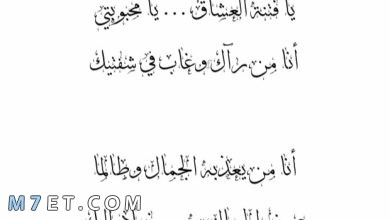 يا فتنة العشاق ... يا محبوبتي
أنا من رآك وغاب في شفتيك
أنا من يعذبه الجمال وطالما
M7ET.COM